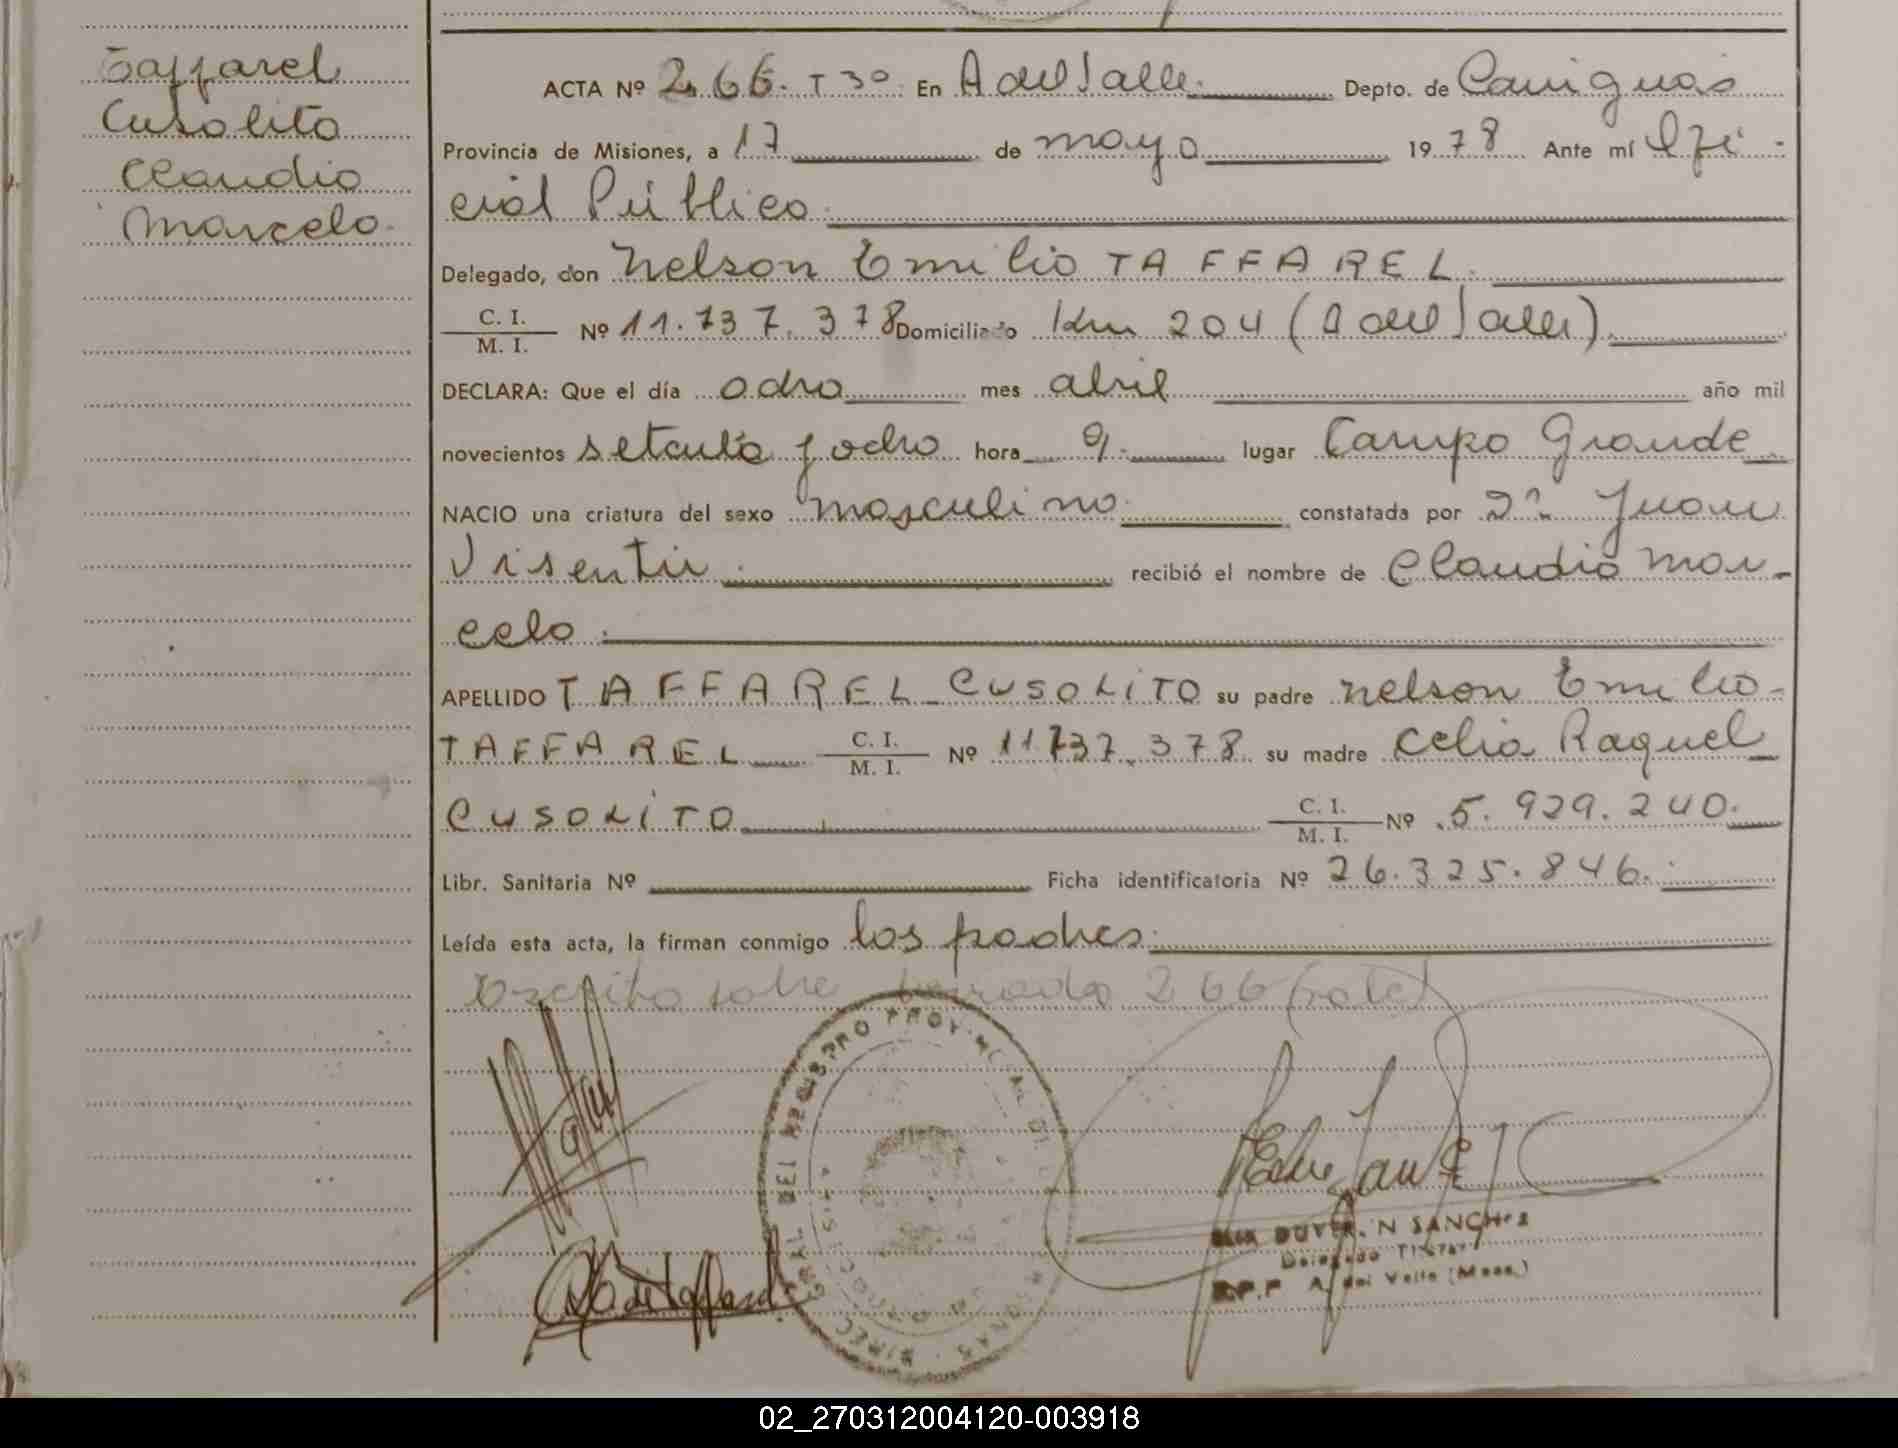 Taffarel
Cusolito
Claudio
Marcelo.
ACTA Nº 266. T 3º En A del Valle. Depto. de Cainguás
Provincia de Misiones, a 17 de mayo 1978 Ante mí Ofi-
cial Público.
Delegado, don Nelson Emilio TAFFAREL.
C. I.
M. I. Nº 11.737.378 Domiciliado Km 204 (A del Valle).
DECLARA: Que el día ocho mes abril año mil
novecientos setenta y ocho hora 9. lugar Campo Grande
NACIO una criatura del sexo masculino. constatada por Dr. Juan
Visentin. recibió el nombre de Claudio Mar-
celo.
APELLIDO TAFFAREL CUSOLITO su padre Nelson Emilio
TAFFAREL C. I.
M. I. Nº 11.737.378 su madre Celia Raquel
CUSOLITO C. I.
M. I. Nº 5.929.240.
Libr. Sanitaria Nº Ficha identificatoria Nº 26.325.846.
Leída esta acta, la firman conmigo los padres.
Escrito sobre borrado 266 (vale)
SANCHEZ
Delegado
A. del Valle (Mnes.)
02_270312004120-003918